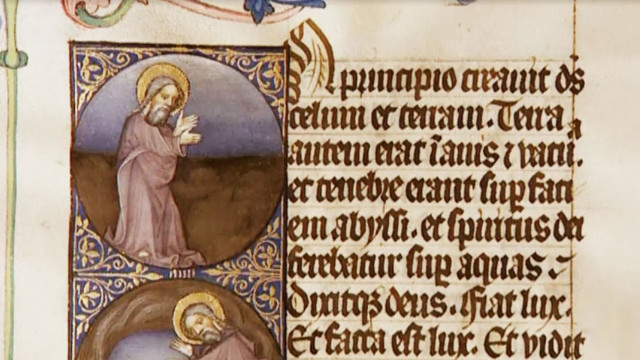 In principio creavit ds
celum et terram. Terra
autem erat īanis ⁊ vacu a
et tenebre erant sup faci
em abyssi. et spiritus dei
ferebatur sup aquas
Dixitqꝫ deus. fiat lux.
Et facta est lux. Et vidit